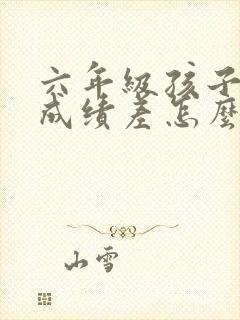 六年级孩子
成绩差怎麼
山雪